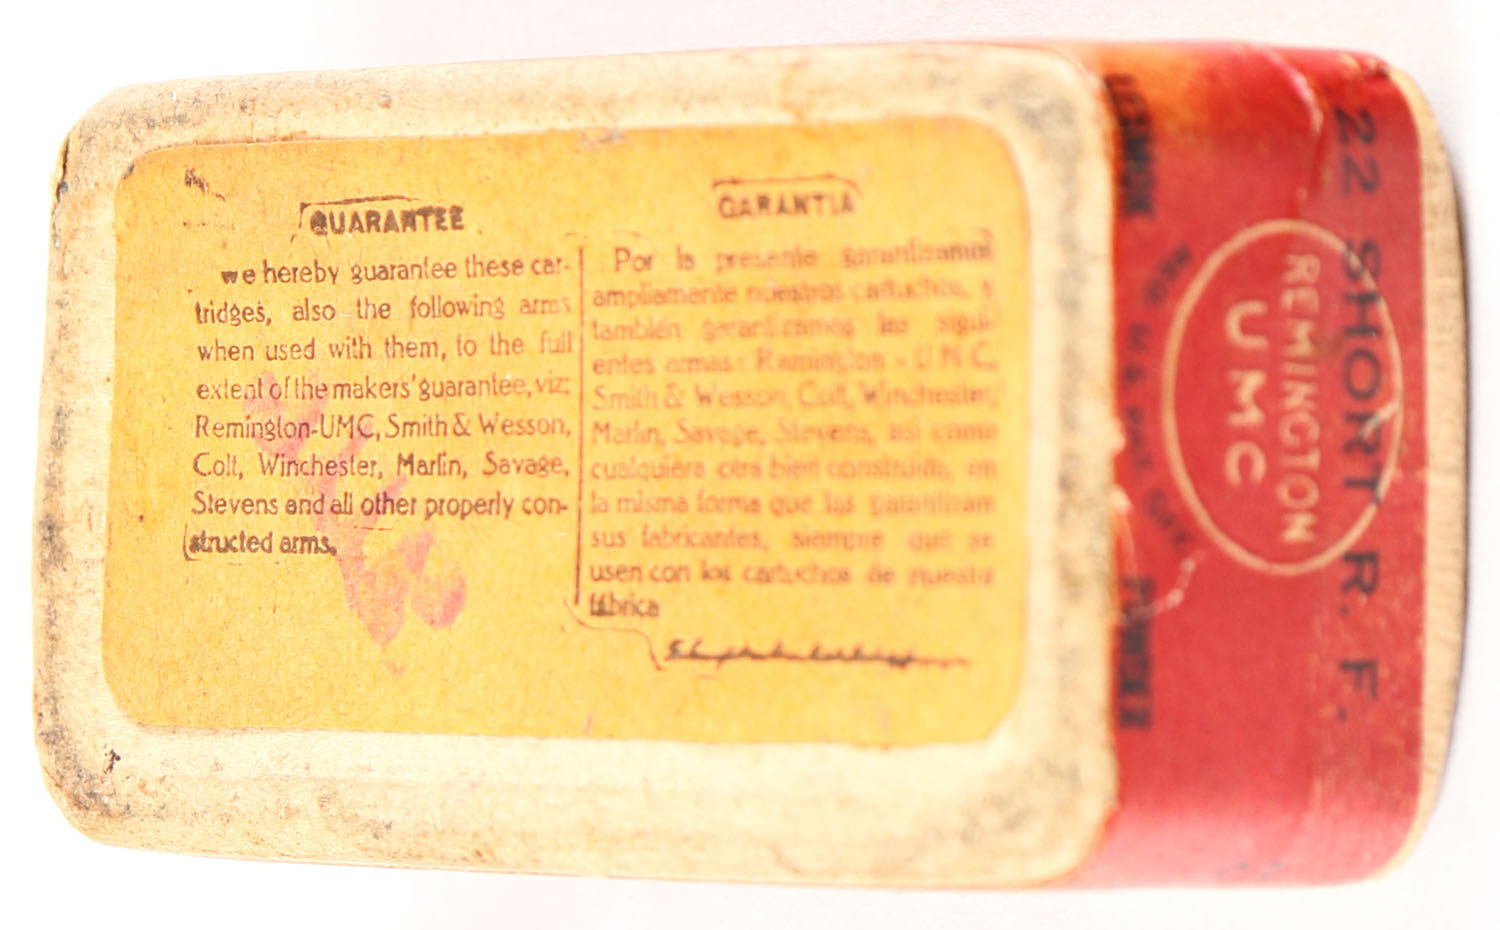 GUARANTEE
we hereby guarantee these car-
tridges, also the following arms
when used with them, to the full
extent of the makers' guarantee, viz:
Remington-UMC, Smith & Wesson,
Colt, Winchester, Marlin, Savage,
Stevens and all other properly con-
structed arms.
GARANTIA
Por la presente garantizamos
ampliamente nuestros cartuchos, y
también garantizamos las sigui-
entes armas: Remington - UMC,
Smith & Wesson, Colt, Winchester,
Marlin, Savage, Stevens, asi como
cualquiera otra bien construida, en
la misma forma que las garantizan
sus fabricantes, siempre que se
usen con los cartuchos de nuestra
fábrica
22 SHORT R. F.
REMINGTON
UMC
POWDER